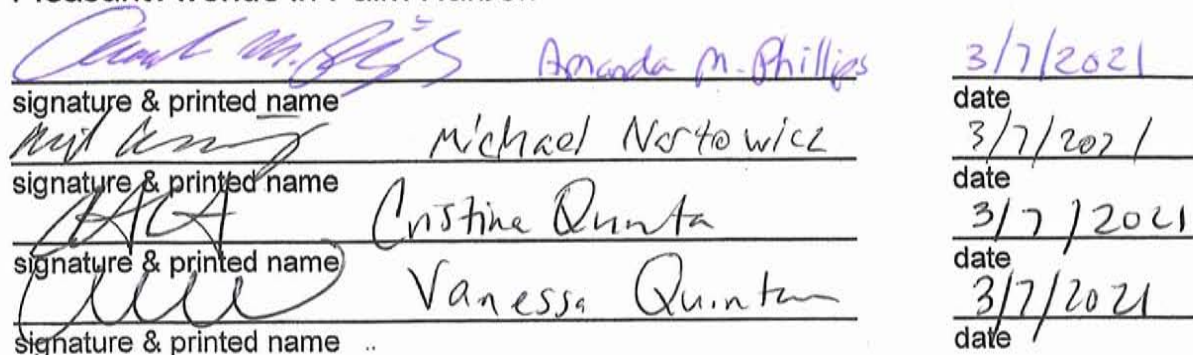 Amanda M. Phillips 3/7/2021
signature & printed name date
Michael Nortowicz 3/7/2021
signature & printed name date
Cristina Quinta 3/7/2021
signature & printed name date
Vanessa 3/7/2021
signature & printed name date